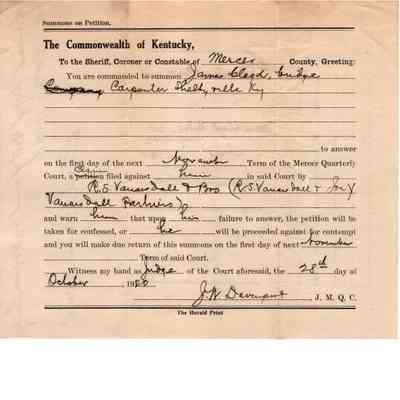 Summons on Petition.
The Commonwealth of Kentucky,
To the Sheriff, Coroner or Constable of Mercer County, Greeting:
You are commanded to summon James Clegh, bridge
Company Carpenter Shelbyville Ky
to answer
on the first day of the next November Term of the Mercer Quarterly
Court, a petition Claim filed against him in said Court by
R.S. Vanarsdall & Bro (R.S. Vanarsdall &
Vanarsdall Partners)
and warn him that upon his failure to answer, the petition will be
taken for confessed, or he will be proceeded against for contempt
and you will make due return of this summons on the first day of next November
Term of said Court.
Witness my hand as Judge of the Court aforesaid, the 28th day of
October 1920
J.W. Davenport, J. M. Q. C.
The Herald Print